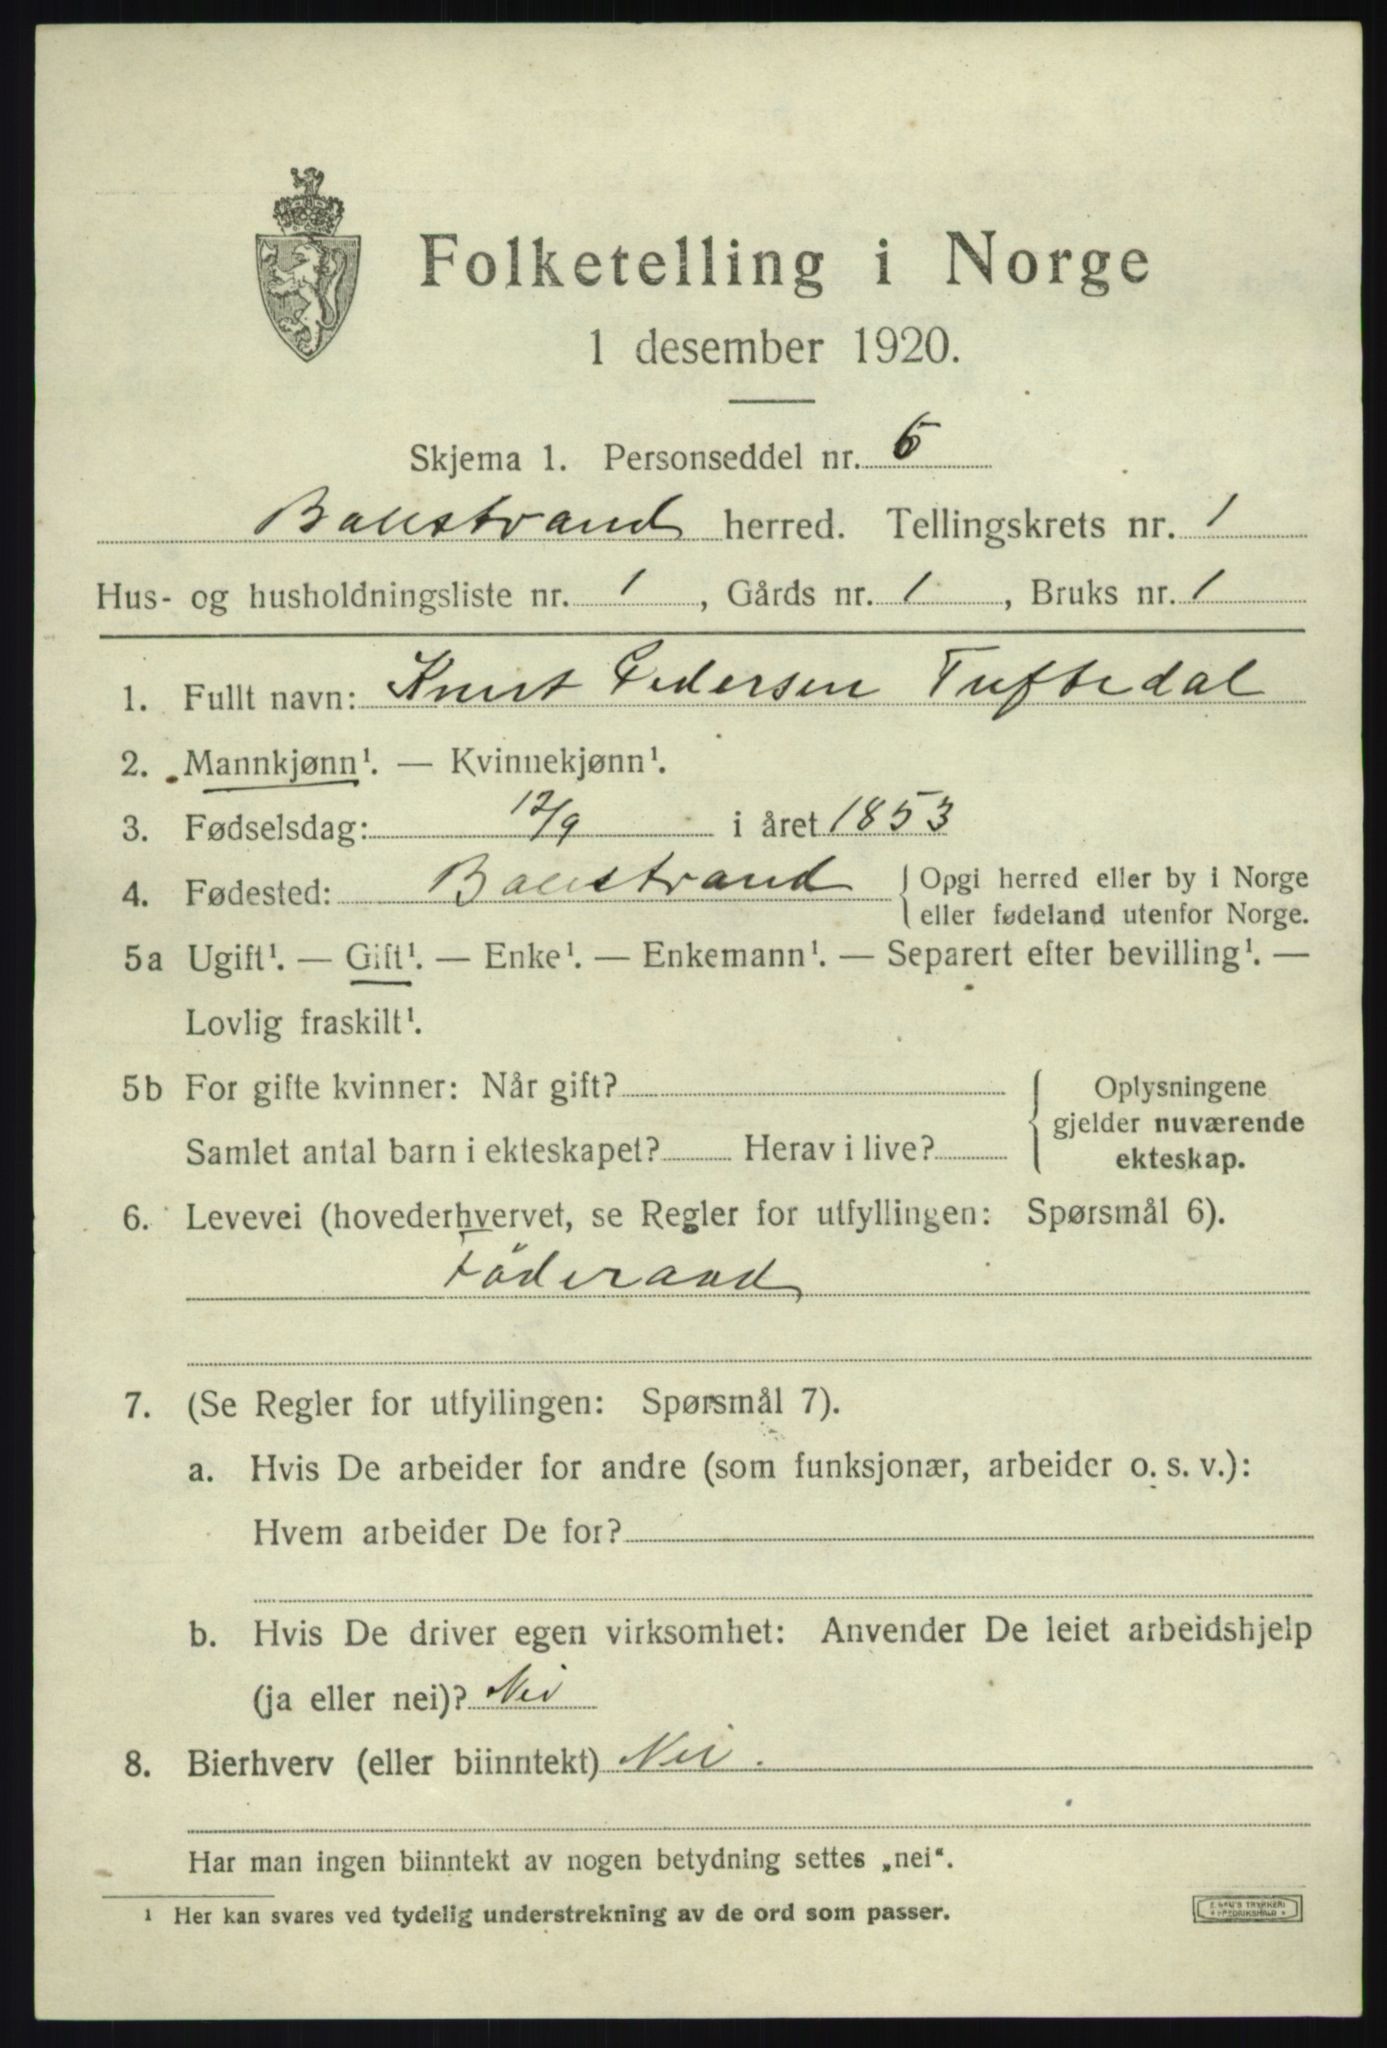 Folketelling i Norge
1 desember 1920.
Skjema 1. Personseddel nr. 6
Balestrand herred. Tellingskrets nr. 1
Hus- og husholdningsliste nr. 1, Gårds nr. 1, Bruks nr. 1
1. Fullt navn: Knut Pedersen Tuftedal
2. Mannkjønn¹. — Kvinnekjønn¹.
3. Fødselsdag: 17/9 i året 1853
4. Fødested: Balestrand { Opgi herred eller by i Norge
eller fødeland utenfor Norge.
5a Ugift¹. — Gift¹. — Enke¹. — Enkemann¹. — Separert efter bevilling¹. —
Lovlig fraskilt¹.
5b For gifte kvinner: Når gift? { Oplysningene
gjelder nuværende
Samlet antal barn i ekteskapet? Herav i live? ekteskap.
6. Levevei (hovederhvervet, se Regler for utfyllingen: Spørsmål 6).
Föderaad
7. (Se Regler for utfyllingen: Spørsmål 7).
a. Hvis De arbeider for andre (som funksjonær, arbeider o. s. v.):
Hvem arbeider De for?
b. Hvis De driver egen virksomhet: Anvender De leiet arbeidshjelp
(ja eller nei)? Nei
8. Bierhverv (eller biinntekt) Nei.
Har man ingen biinntekt av nogen betydning settes „nei“.
¹ Her kan svares ved tydelig understrekning av de ord som passer.